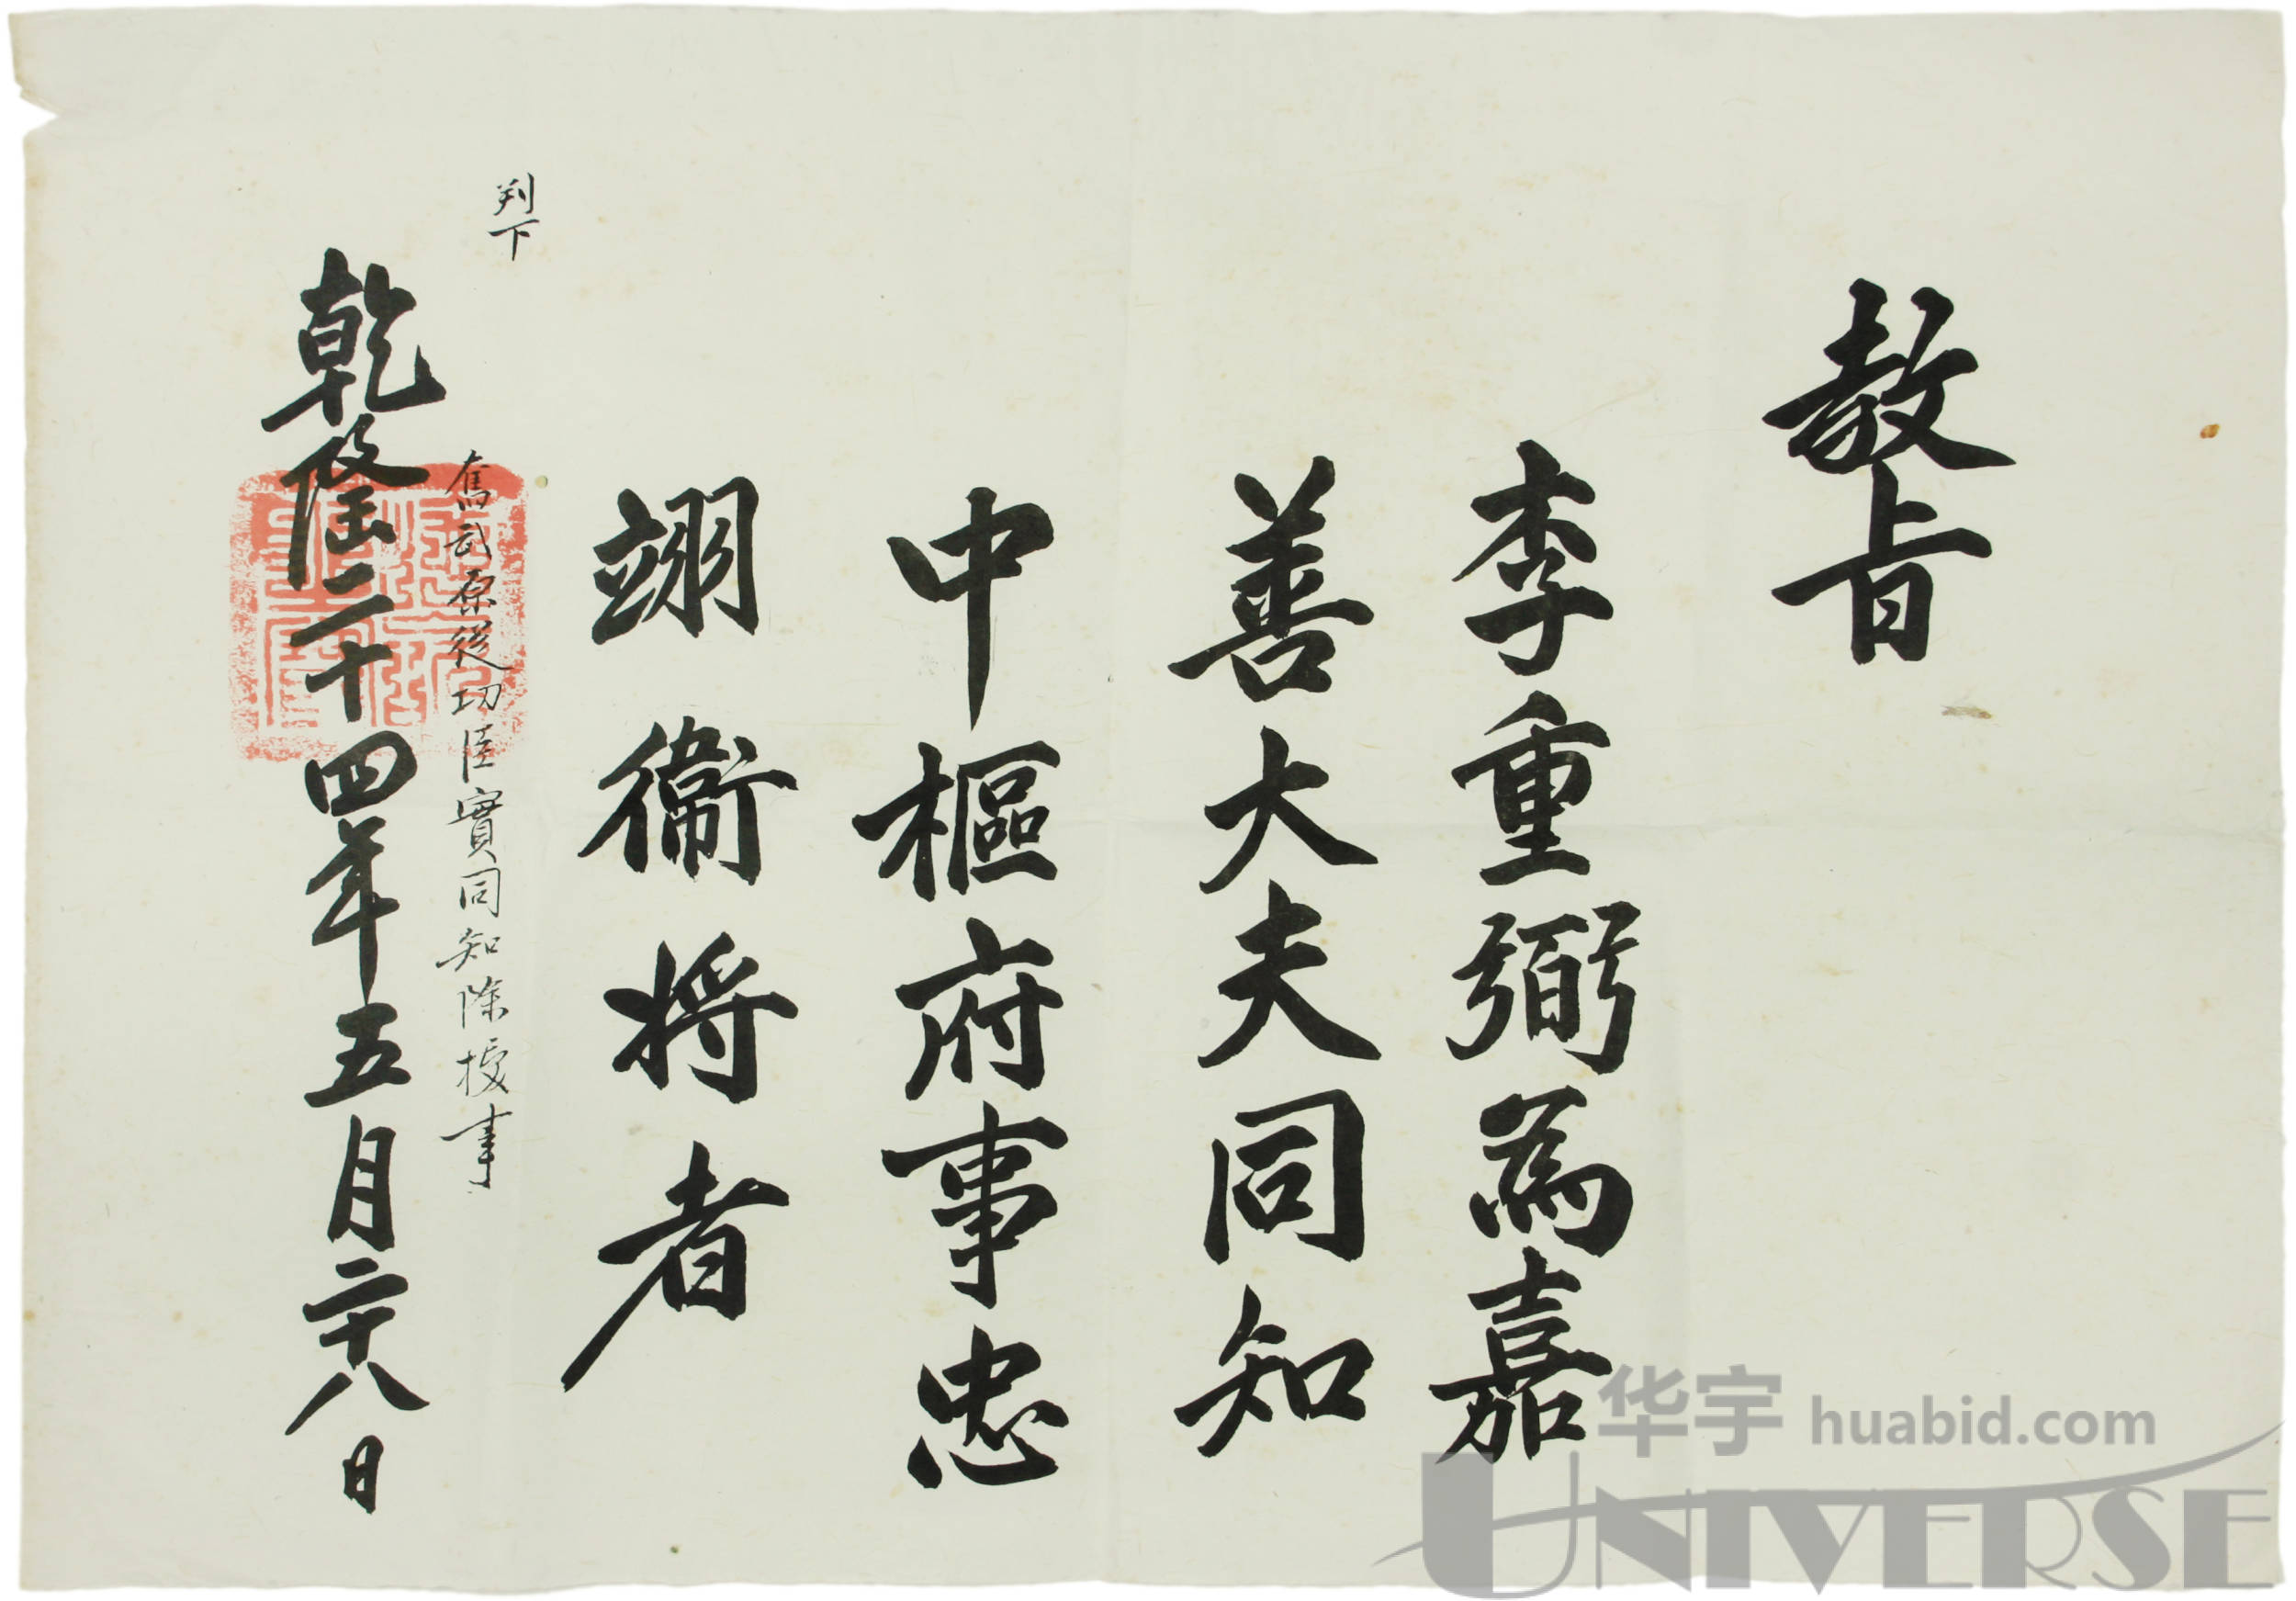 教旨
李重弼為嘉
善大夫同知
中樞府事忠
翊衛将者
判下
奮武原從功臣實同知除授事
乾隆二十四年五月二十八日
华宇 huabid.com
UNIVERSE